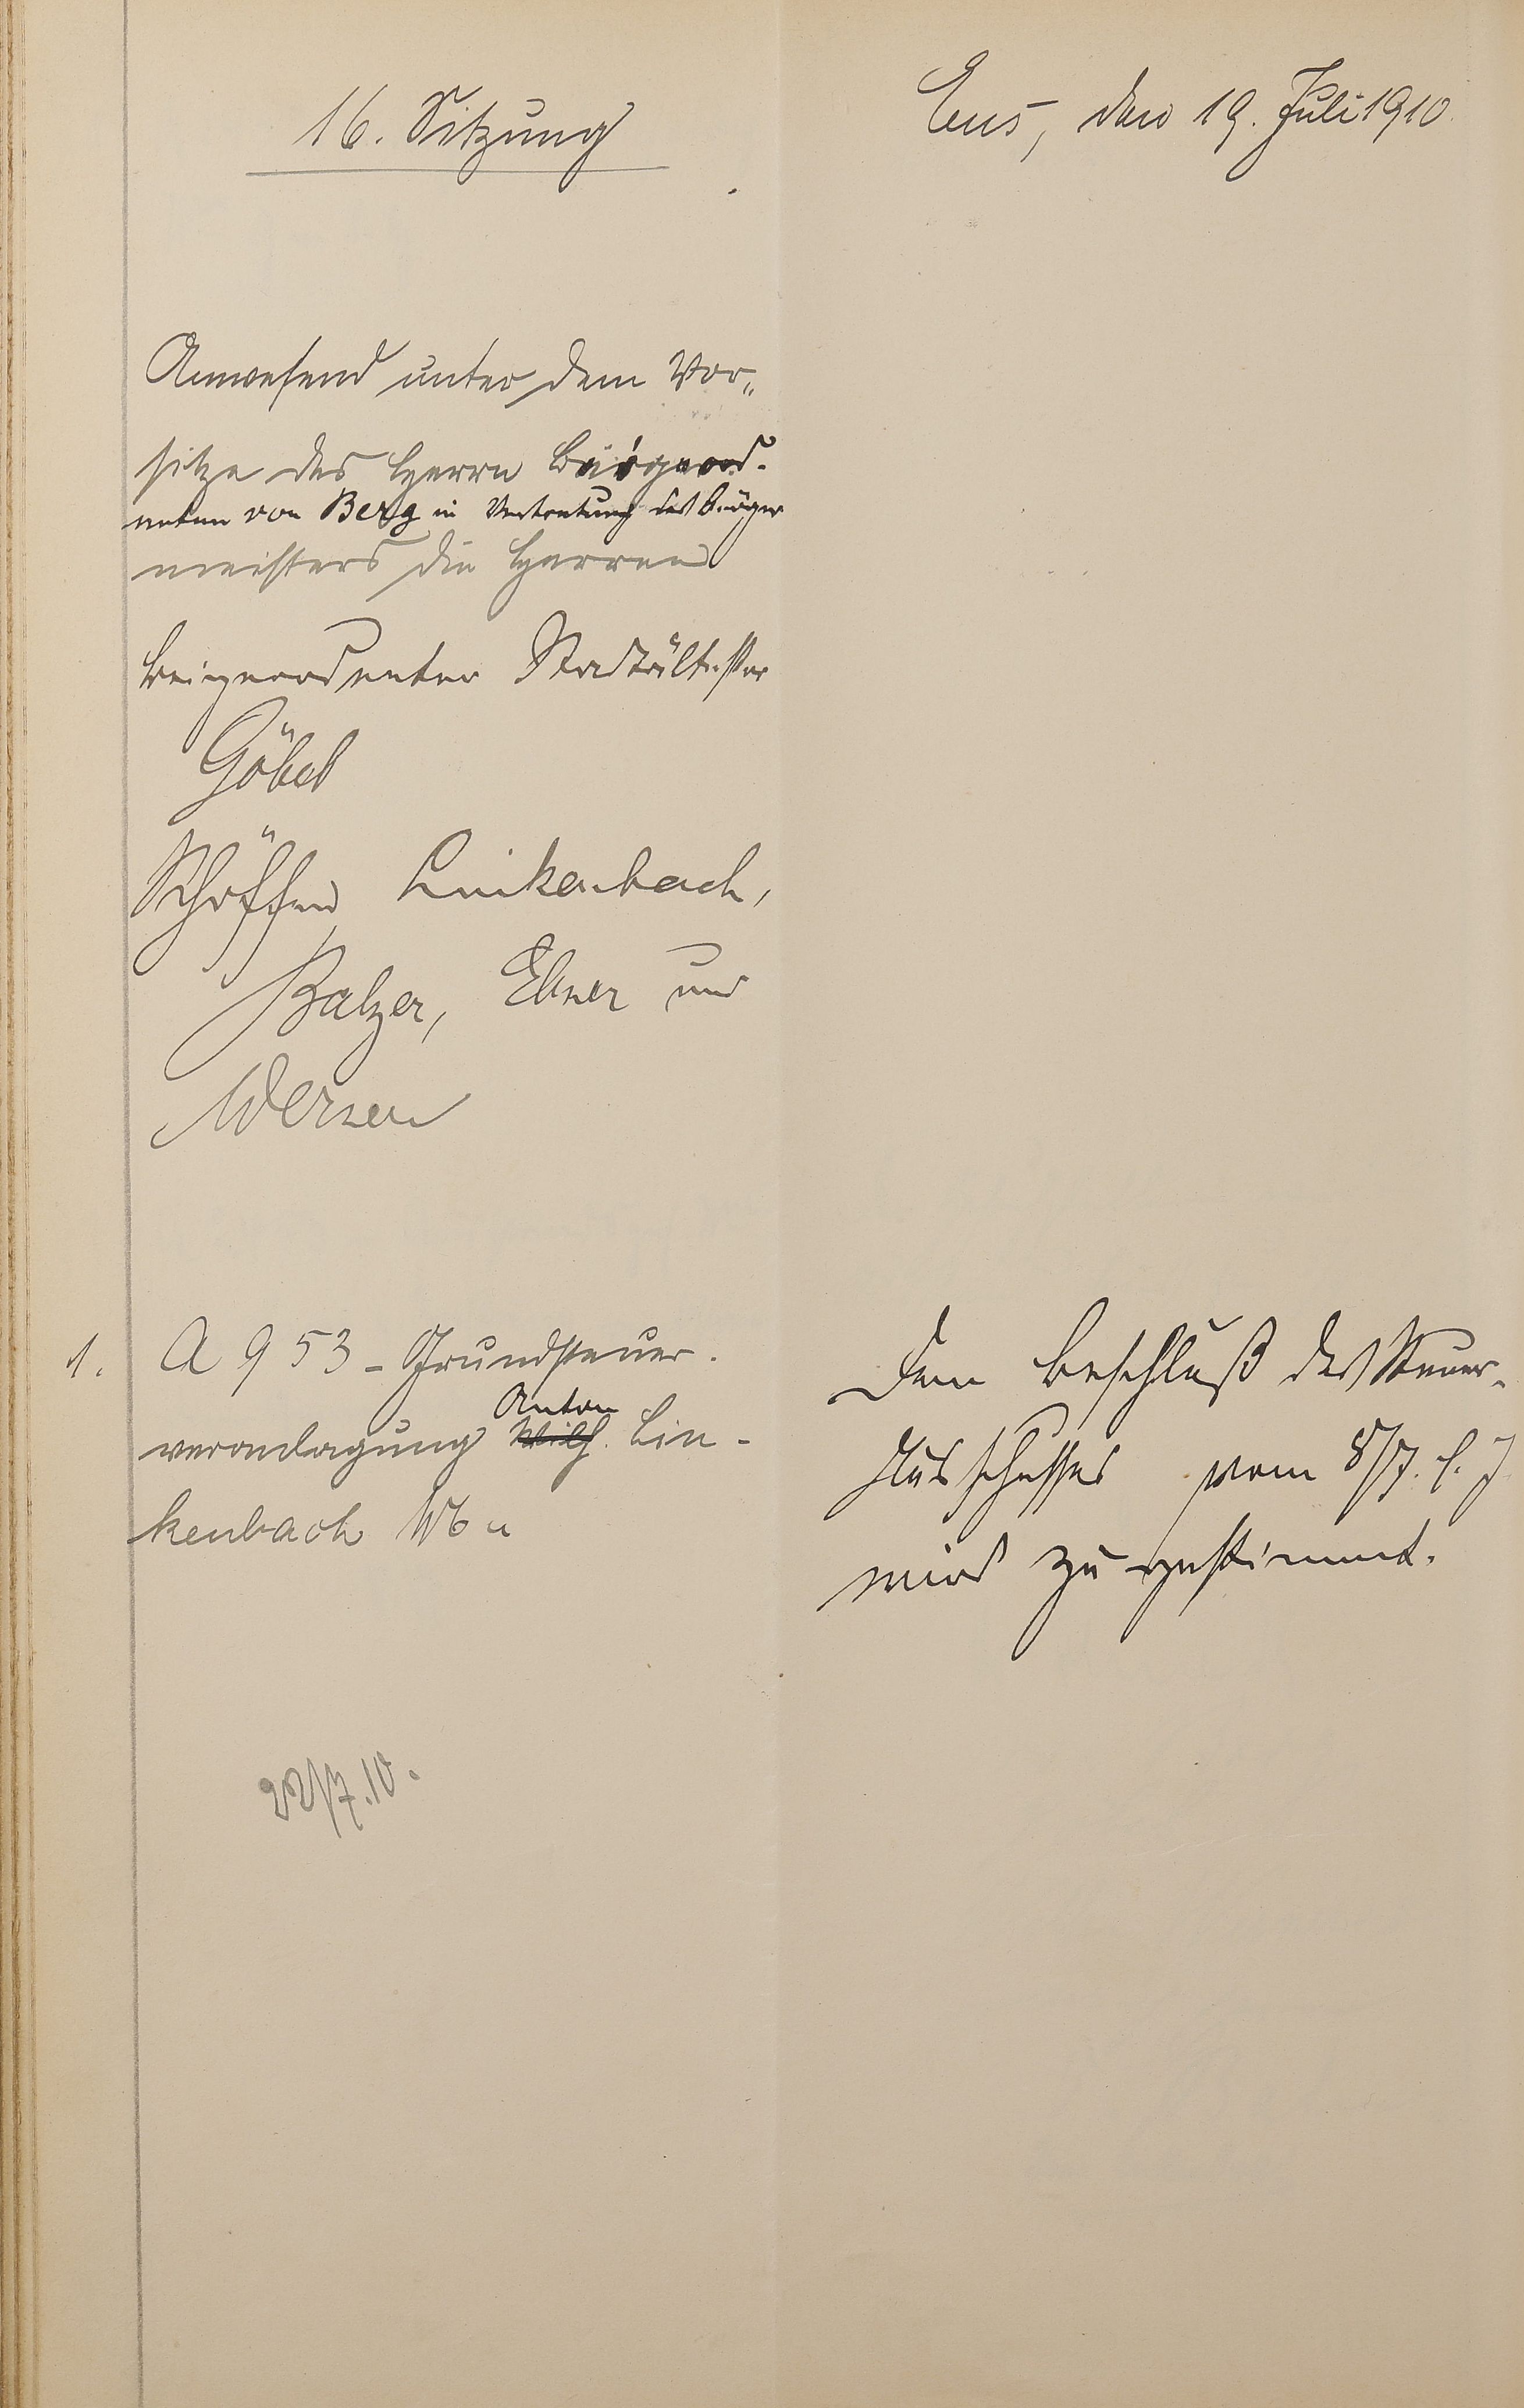 16. Sitzung
Ems, den 19. Juli 1910.
Anwesend unter dem Vor„
sitze des Herrn Beigeord-
neten von Berg in Vertretung des Bürger
meisters die Herren
Beigeordneter Stadtältester
Göbel
Schöffen Linkenbach,
Balzer, Ebner und
Werner
1. A 953 - Grundsteuer-
veranlagung Wilh. Anton Lin-
kenbach Ww
Dem Beschluß des Steuer-
Ausschusses vom 8/7. l. J
wird zugestimmt.
22/7.10.